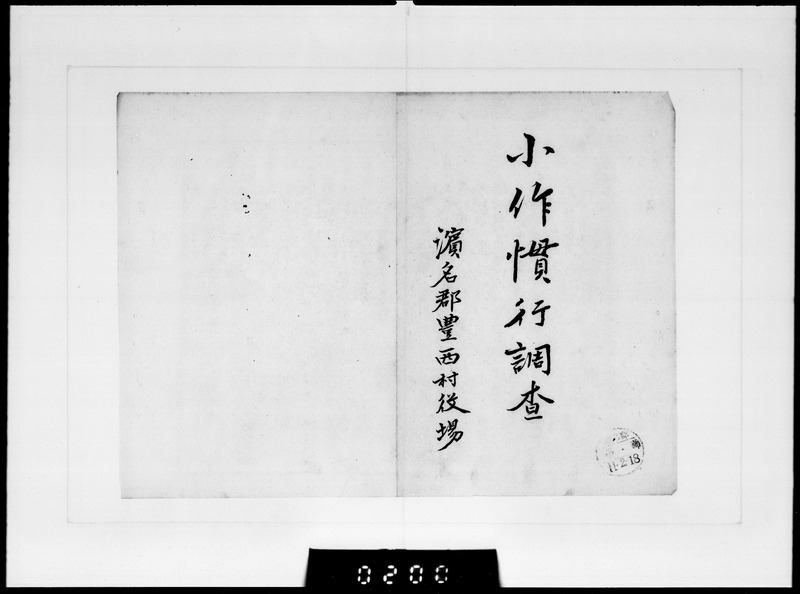 小作慣行調査
濱名郡豊西村役場
11.2.18
0200